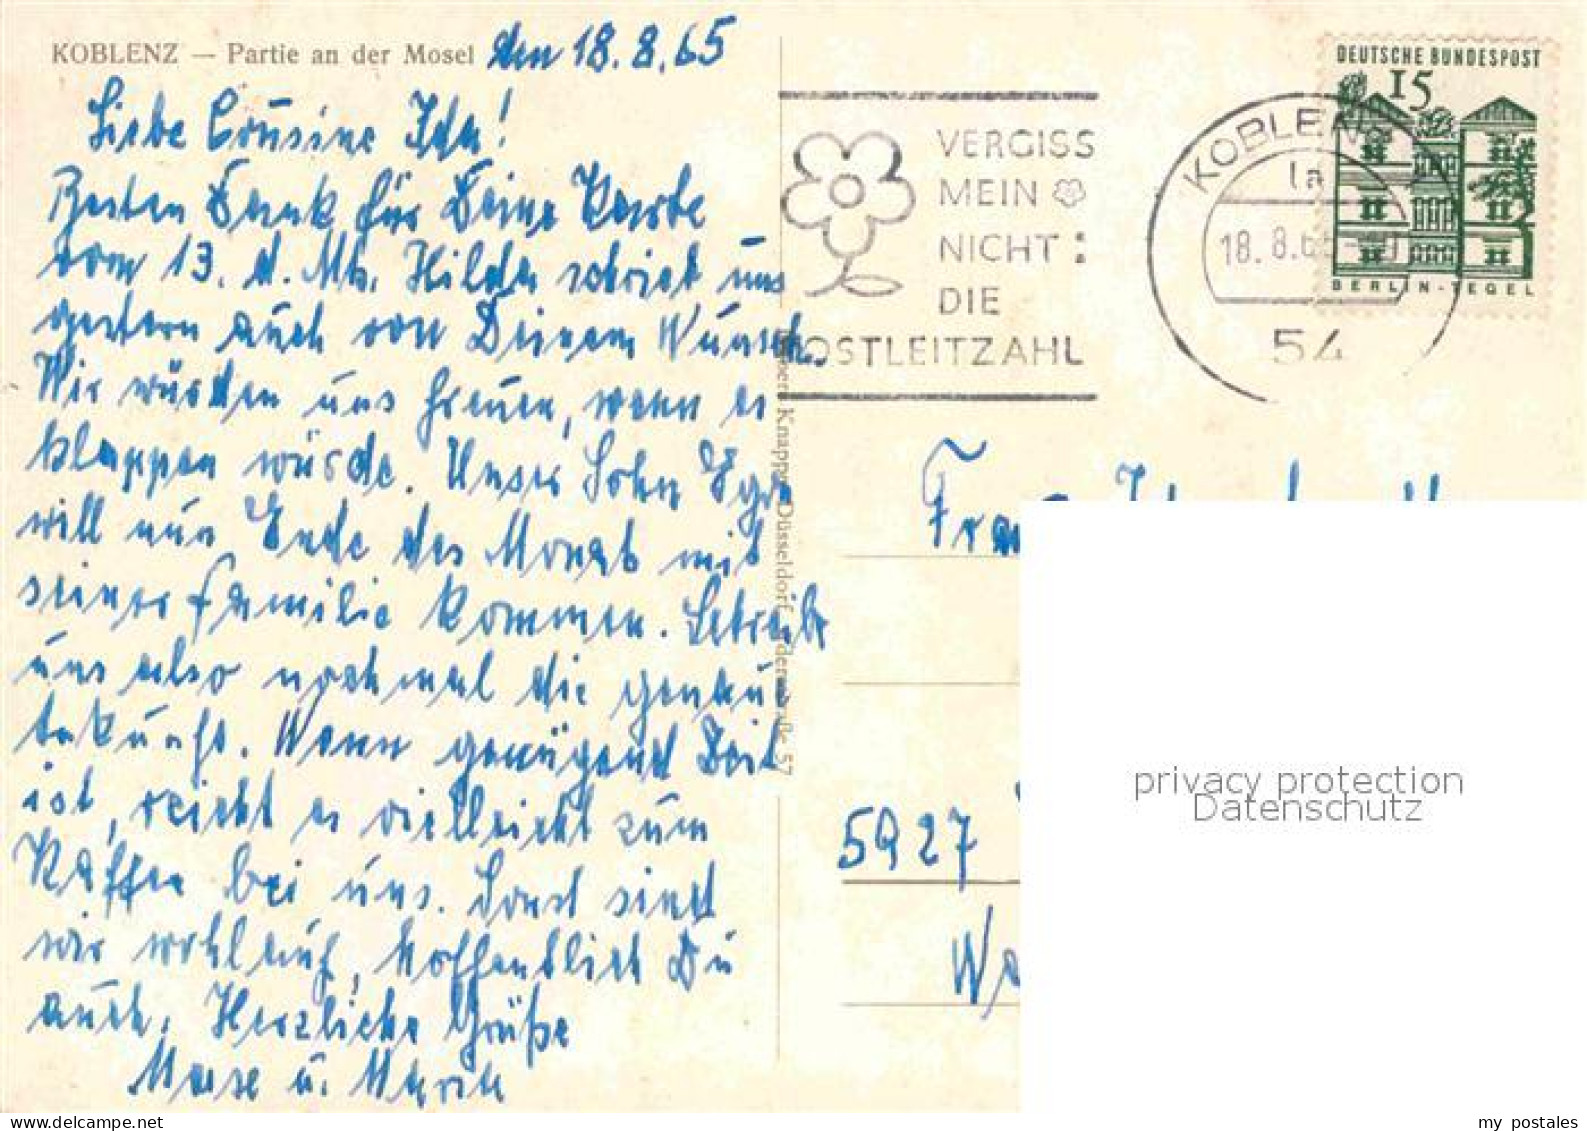 KOBLENZ — Partie an der Mosel
den 18.8.65
Liebe Cousine Ida!
Besten Dank für Deine Karte
vom 13. d. Mts. Hilda schrieb uns
gestern auch von Deinem Wunsch.
Wir würden uns freuen, wenn es
klappen würde. Unser Sohn Egon
will nun Ende des Monats mit
seiner Familie kommen. Schreibe
uns also nochmal die genaue
Ankunft. Wenn genügend Zeit
ist, reicht es vielleicht zum
Kaffee bei uns. Sonst sind
wir wohlauf, hoffentlich Du
auch. Herzliche Grüße
u. Maria
Knapp, Düsseldorf,
57
VERGISS
MEIN
NICHT:
DIE
POSTLEITZAHL
KOBLENZ
1a
18. 8. 65
54
DEUTSCHE BUNDESPOST
15
BERLIN-TEGEL
Frau
5927
privacy protection
Datenschutz
www.delcampe.net
my_postales